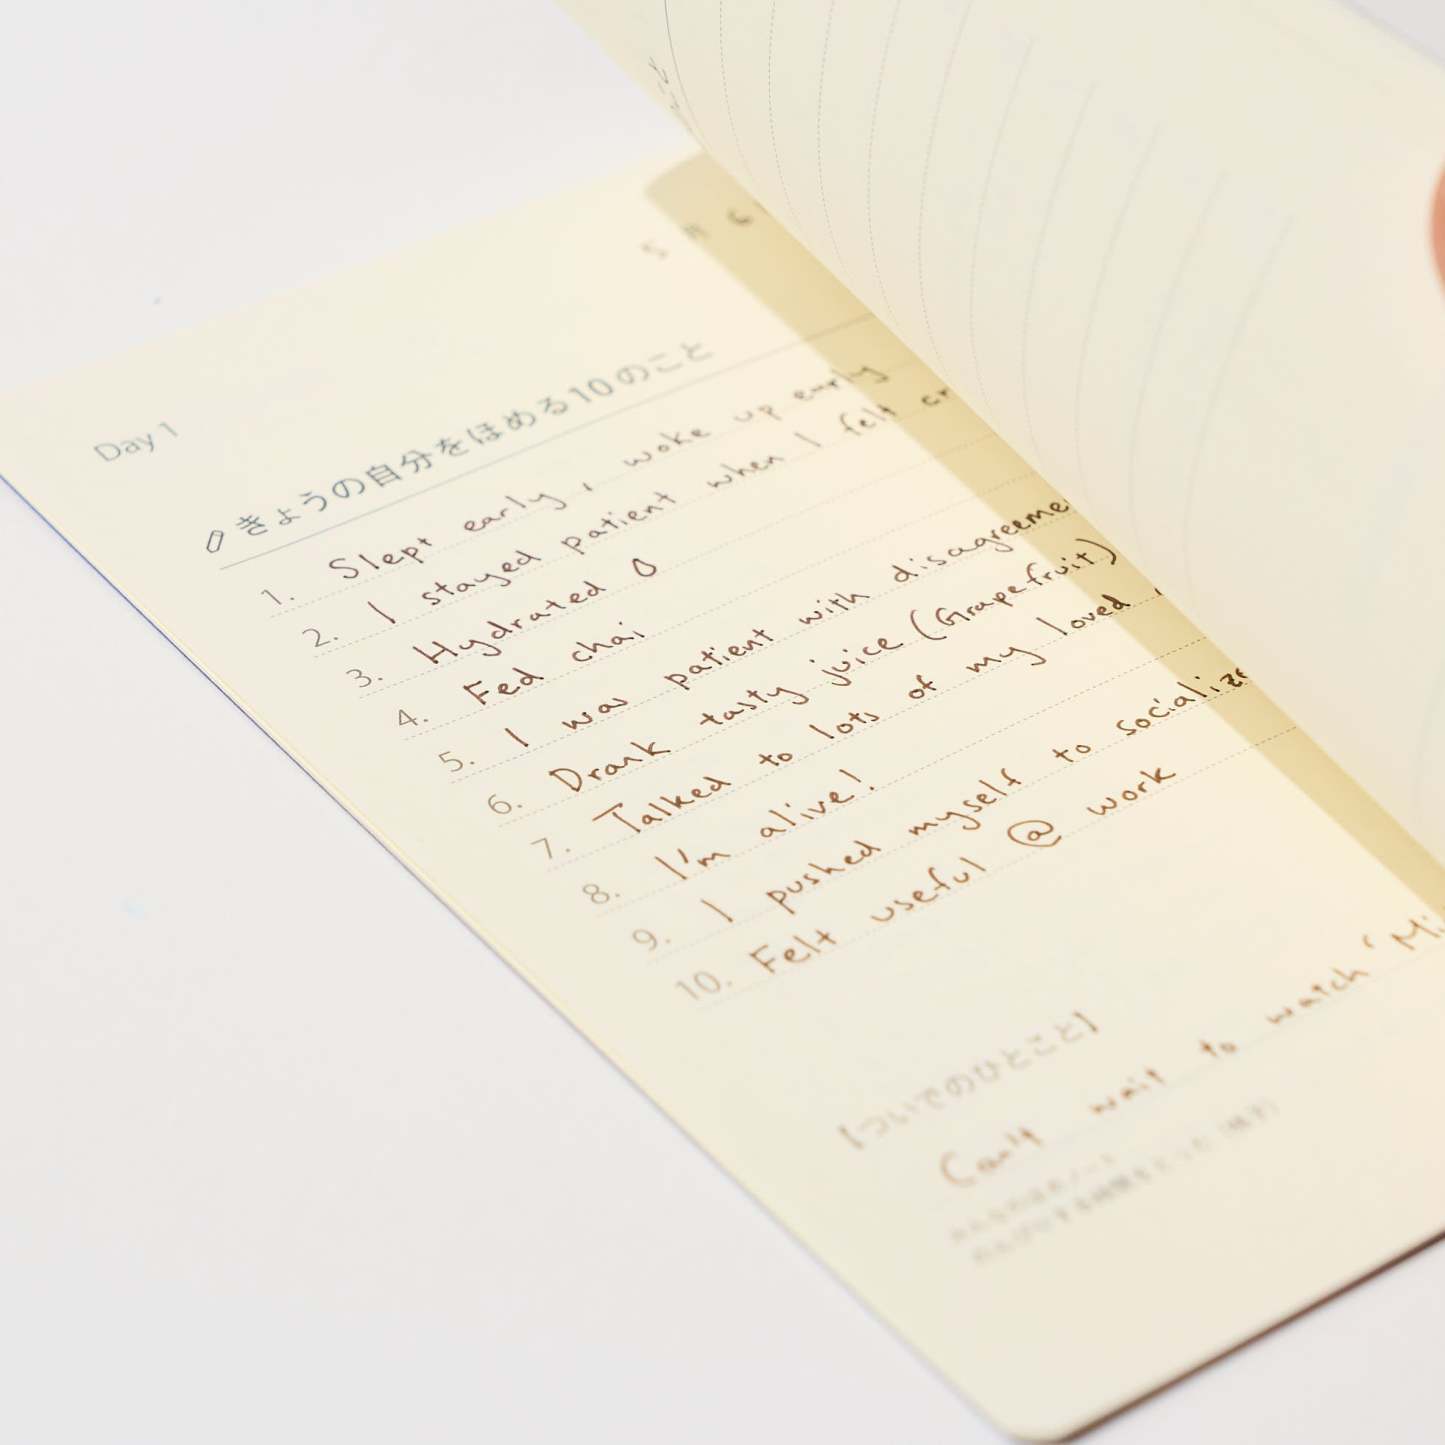 5 月 6
Day 1
きょうの自分をほめる10のこと
1. Slept early, woke up early
2. I stayed patient when I felt
3. Hydrated
4. Fed chai
5. I was patient with
6. Drank tasty juice (Grapefruit)
7. Talked to lots of my loved
8. I'm alive!
9. I pushed myself to
10. Felt useful @ work
【ついでのひとこと】
Can't wait to watch "